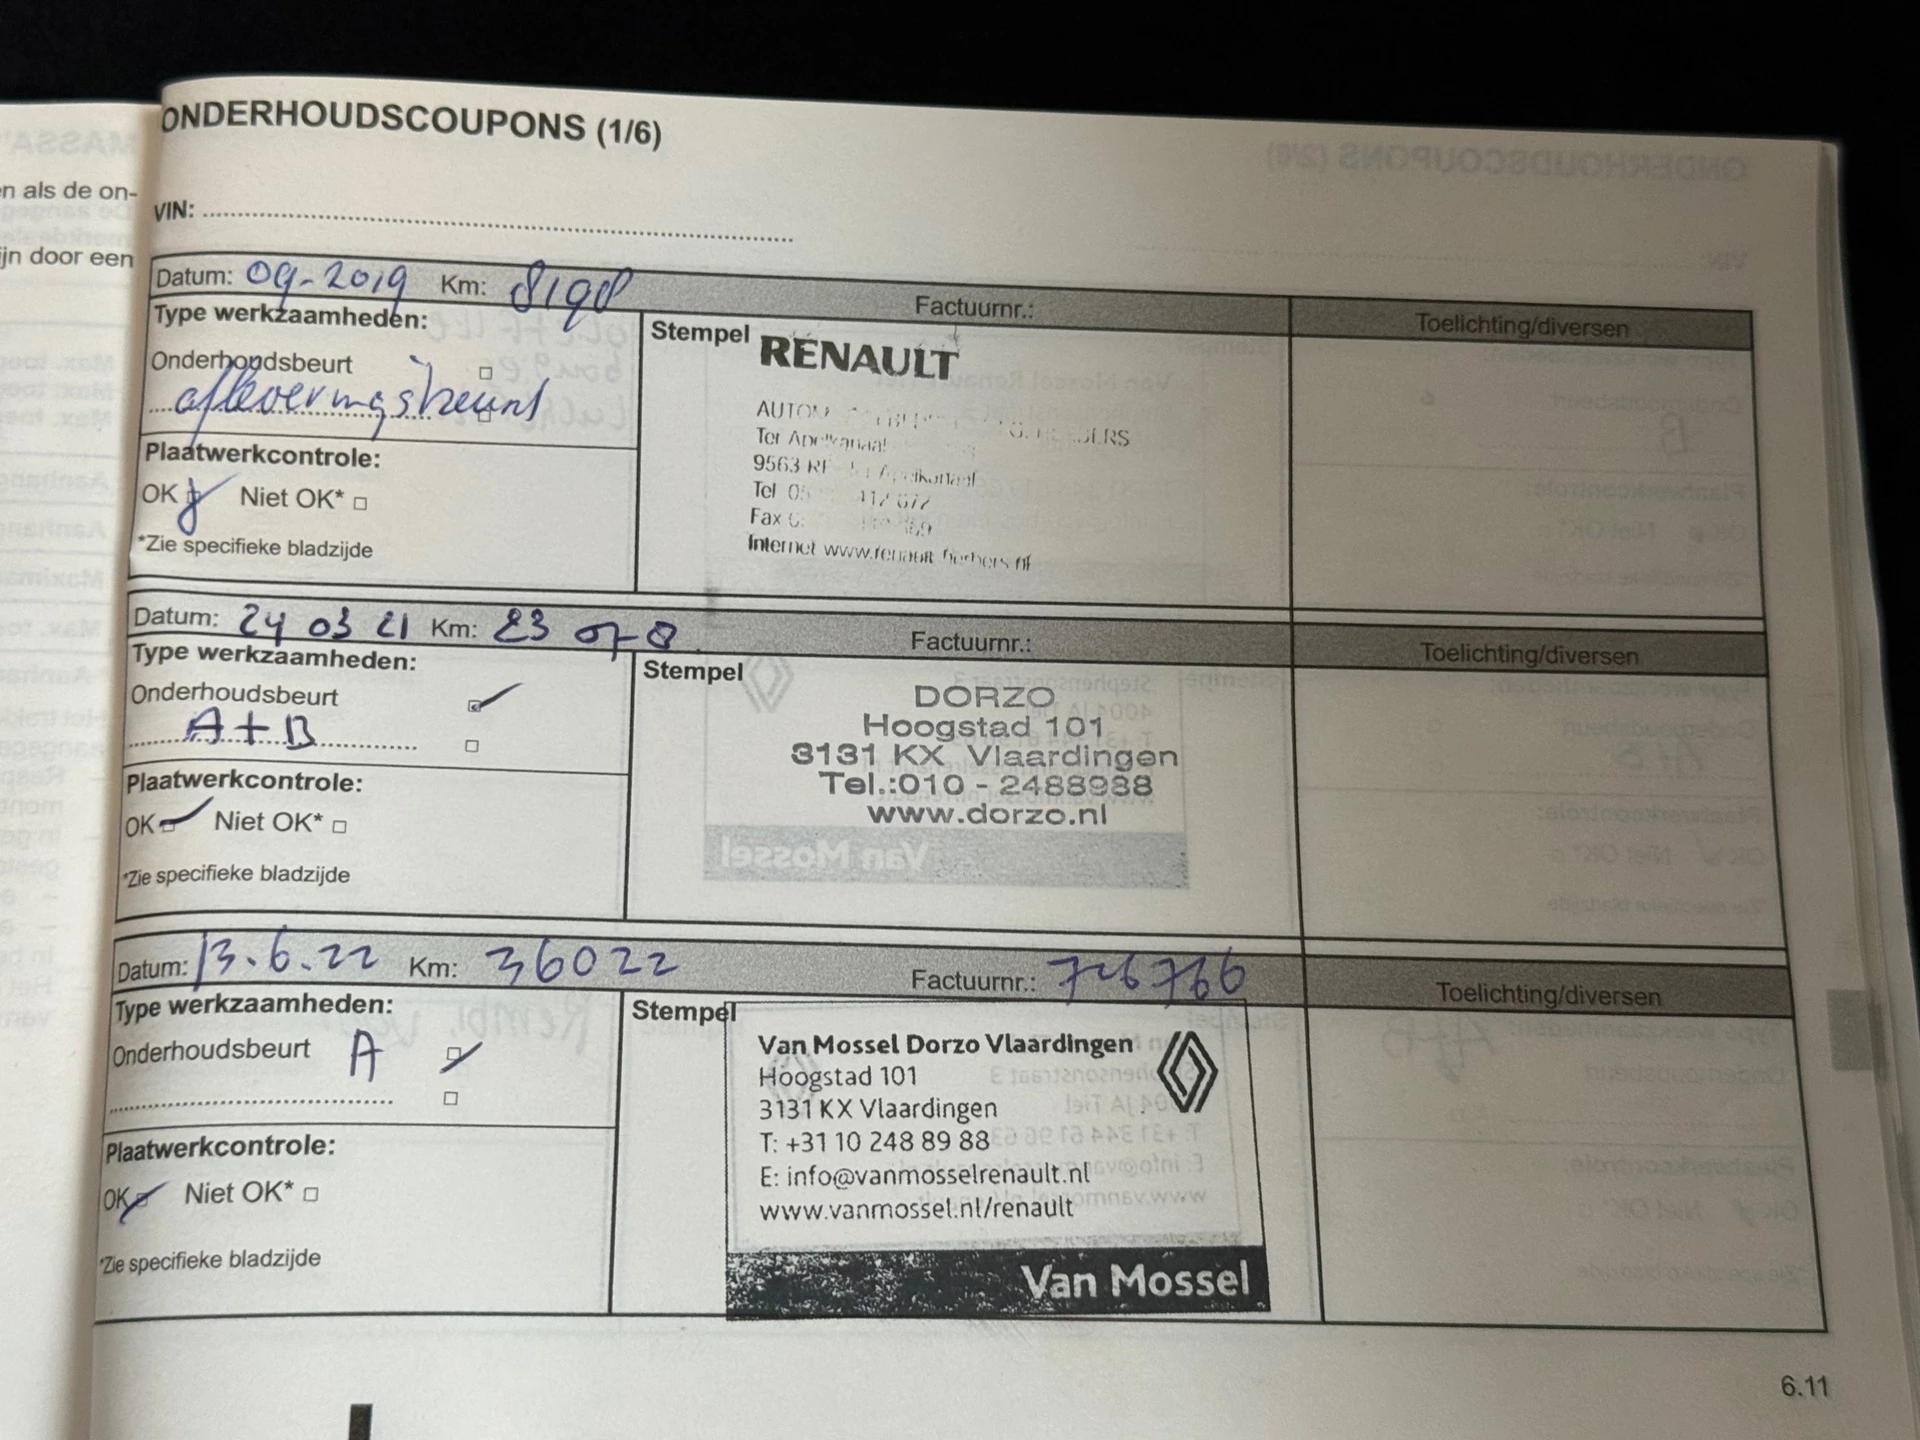 ONDERHOUDSCOUPONS (1/6)
en als de on-
VIN:
ijn door een
Datum: 09-2019 Km: 8198 Factuurnr.: Toelichting/diversen
Type werkzaamheden:
Stempel
RENAULT
Onderhoudsbeurt
afleveringsbeurt
Ter Apelkanaal
9563
Tel
Fax
Internet www.renault
Plaatwerkcontrole:
OK Niet OK*
*Zie specifieke bladzijde
Datum: 24 03 21 Km: 23 Factuurnr.: Toelichting/diversen
Type werkzaamheden:
Stempel
Onderhoudsbeurt
A+B
DORZO
Hoogstad 101
3131 KX Vlaardingen
Tel.:010 - 2488988
www.dorzo.nl
Plaatwerkcontrole:
OK Niet OK*
*Zie specifieke bladzijde
Datum: 13.6.22 Km: 36022 Factuurnr.: 726766 Toelichting/diversen
Type werkzaamheden:
Stempel
Onderhoudsbeurt A
Van Mossel Dorzo Vlaardingen
Hoogstad 101
3131 KX Vlaardingen
T: +31 10 248 89 88
E: info@vanmosselrenault.nl
www.vanmossel.nl/renault
Van Mossel
Plaatwerkcontrole:
OK Niet OK*
*Zie specifieke bladzijde
6.11